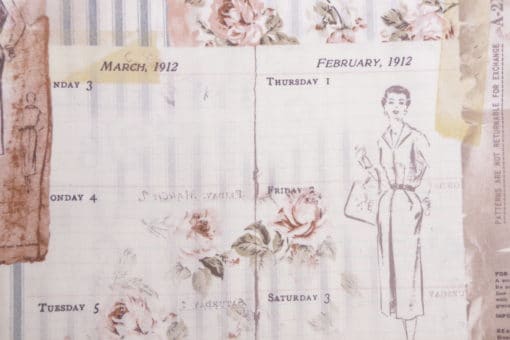 MARCH, 1912
NDAY 3
ONDAY 4
TUESDAY 5
FEBRUARY, 1912
THURSDAY 1
FRIDAY 2
SATURDAY 3
FRIDAY, MARCH
SATURDAY
PATTERNS ARE NOT RETURNABLE FOR EXCHANGE
A-2
FOR